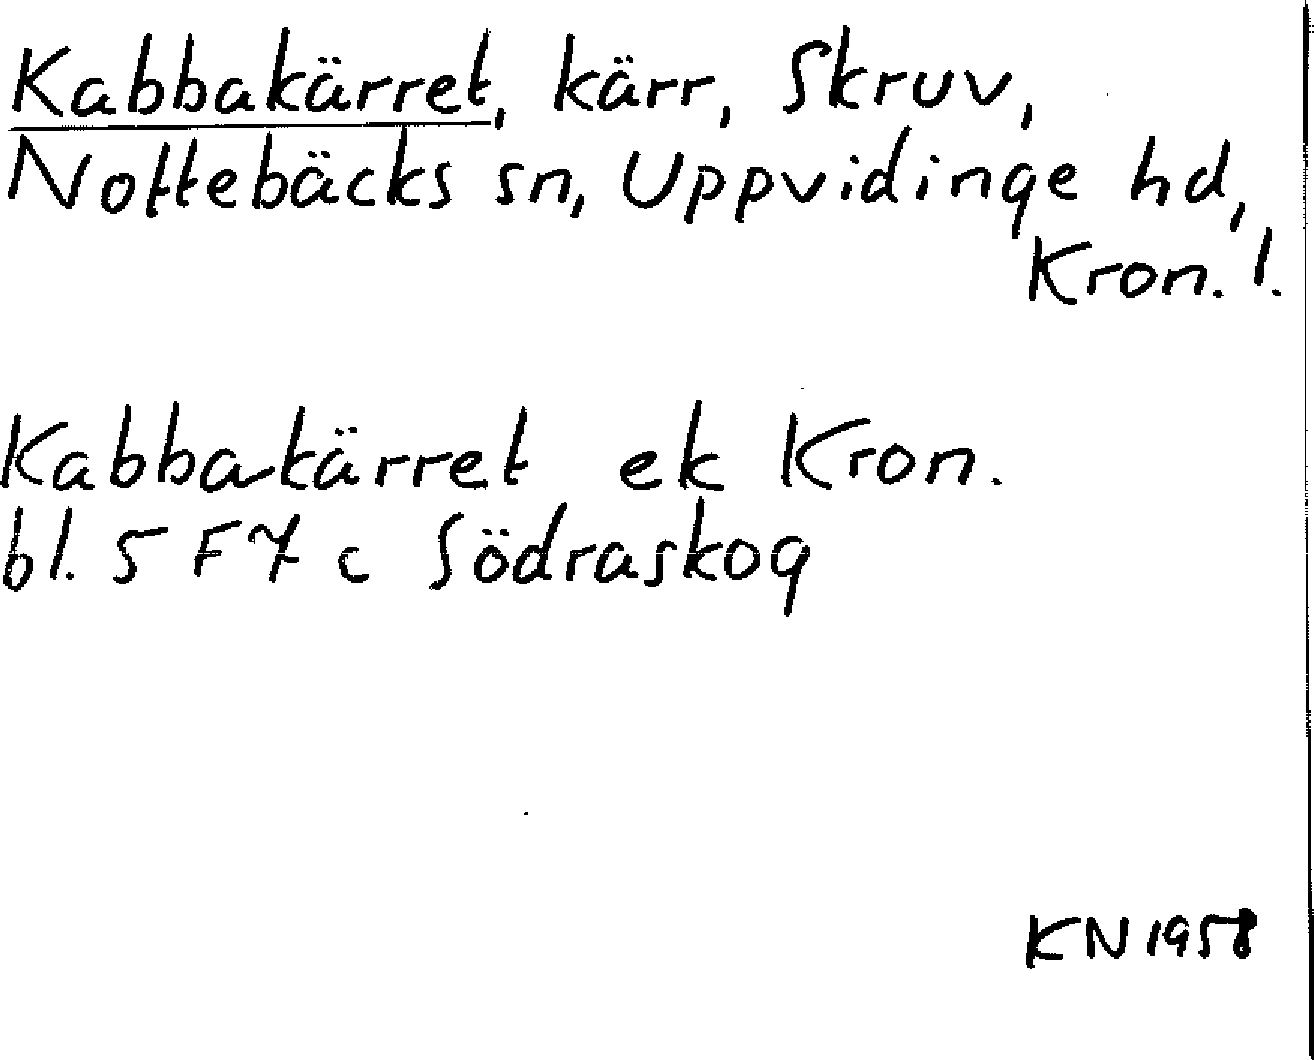 Kabbakärret, kärr, Skruv,
Nottebäcks sn, Uppvidinge hd,
Kron. l.
Kabbakärret ek Kron.
bl. 5 F 7 c Södraskog
KN 1958